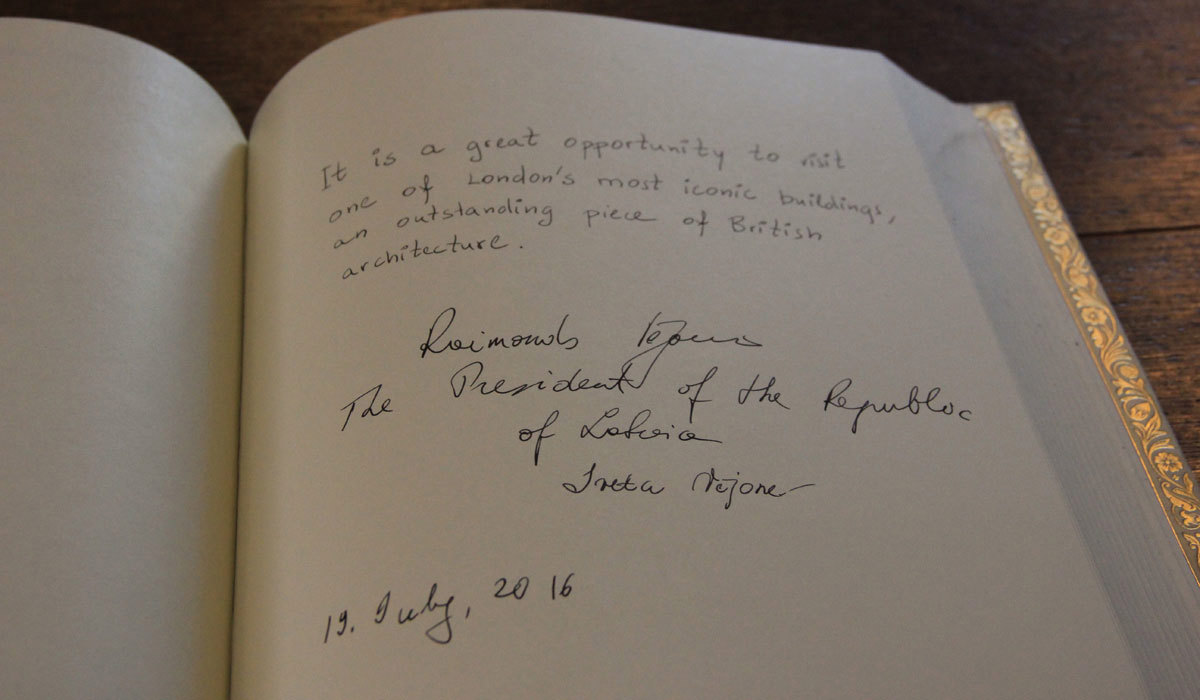 It is a great opportunity to visit
one of London's most iconic buildings,
an outstanding piece of British
architecture.
Raimonds Vējonis
The President of the Republic
of Latvia
Iveta Vējone
19. July, 2016